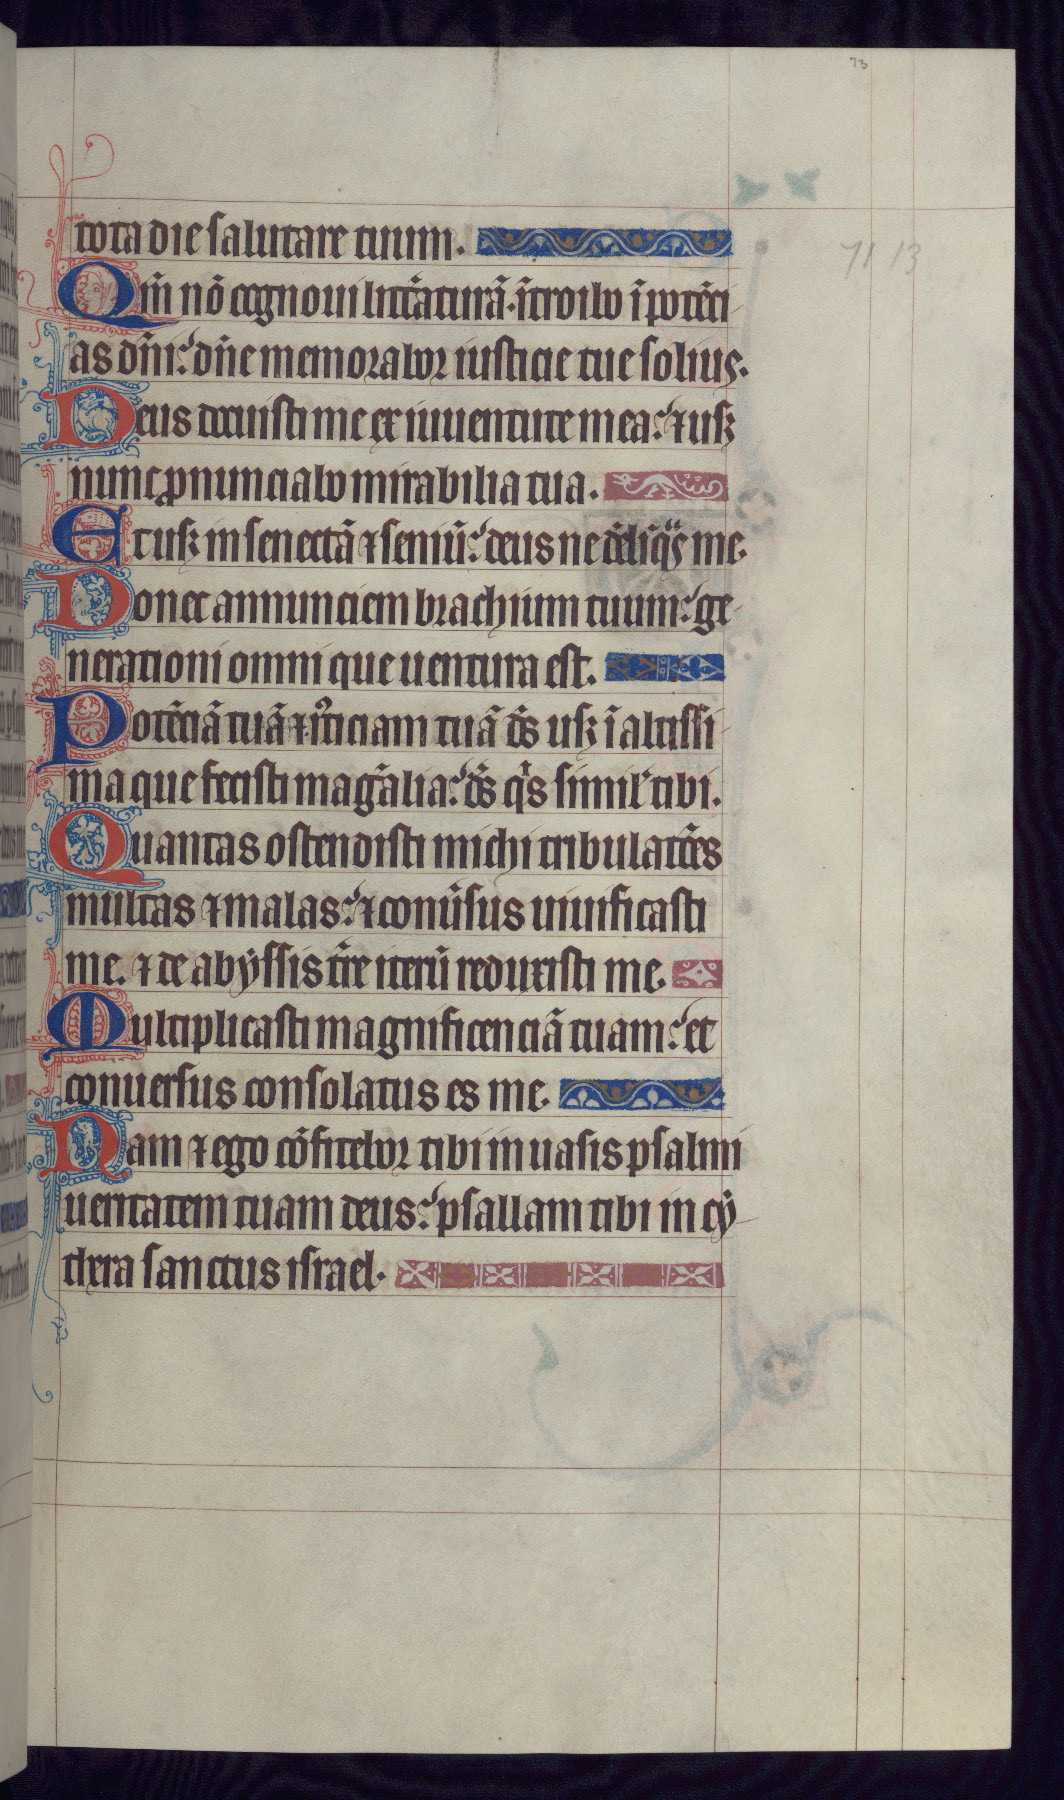 73
71 13
tota die salutare tuum.
Qm̄ nō cognoui litt̄aturā. ītroibo ī potēci
as dn̄i: dn̄e memorabor iusticie tue solius.
Deus docuisti me ex iuuentute mea: ⁊ usqꝫ
nunc ꝓnunciabo mirabilia tua.
Et usqꝫ in senectā ⁊ seniū: deus ne me.
Donec annunciem brachium tuum: ge
nerationi omni que uentura est.
Potēciā tuā ⁊ iusticiam tuā ds̄ usqꝫ ī altissi
ma que fecisti magālia: ds̄ qis simil' tibi.
Quantas ostendisti michi tribulatōes
multas ⁊ malas: ⁊ conūsus uiuificasti
me. ⁊ de abyssis tr̄e iterū reduxisti me.
Multiplicasti magnificenciā tuam: et
conuersus consolatus es me.
Nam ⁊ ego cōfitebor tibi in uasis psalmi
ueritatem tuam deus: psallam tibi in cy
thera sanctus israel.